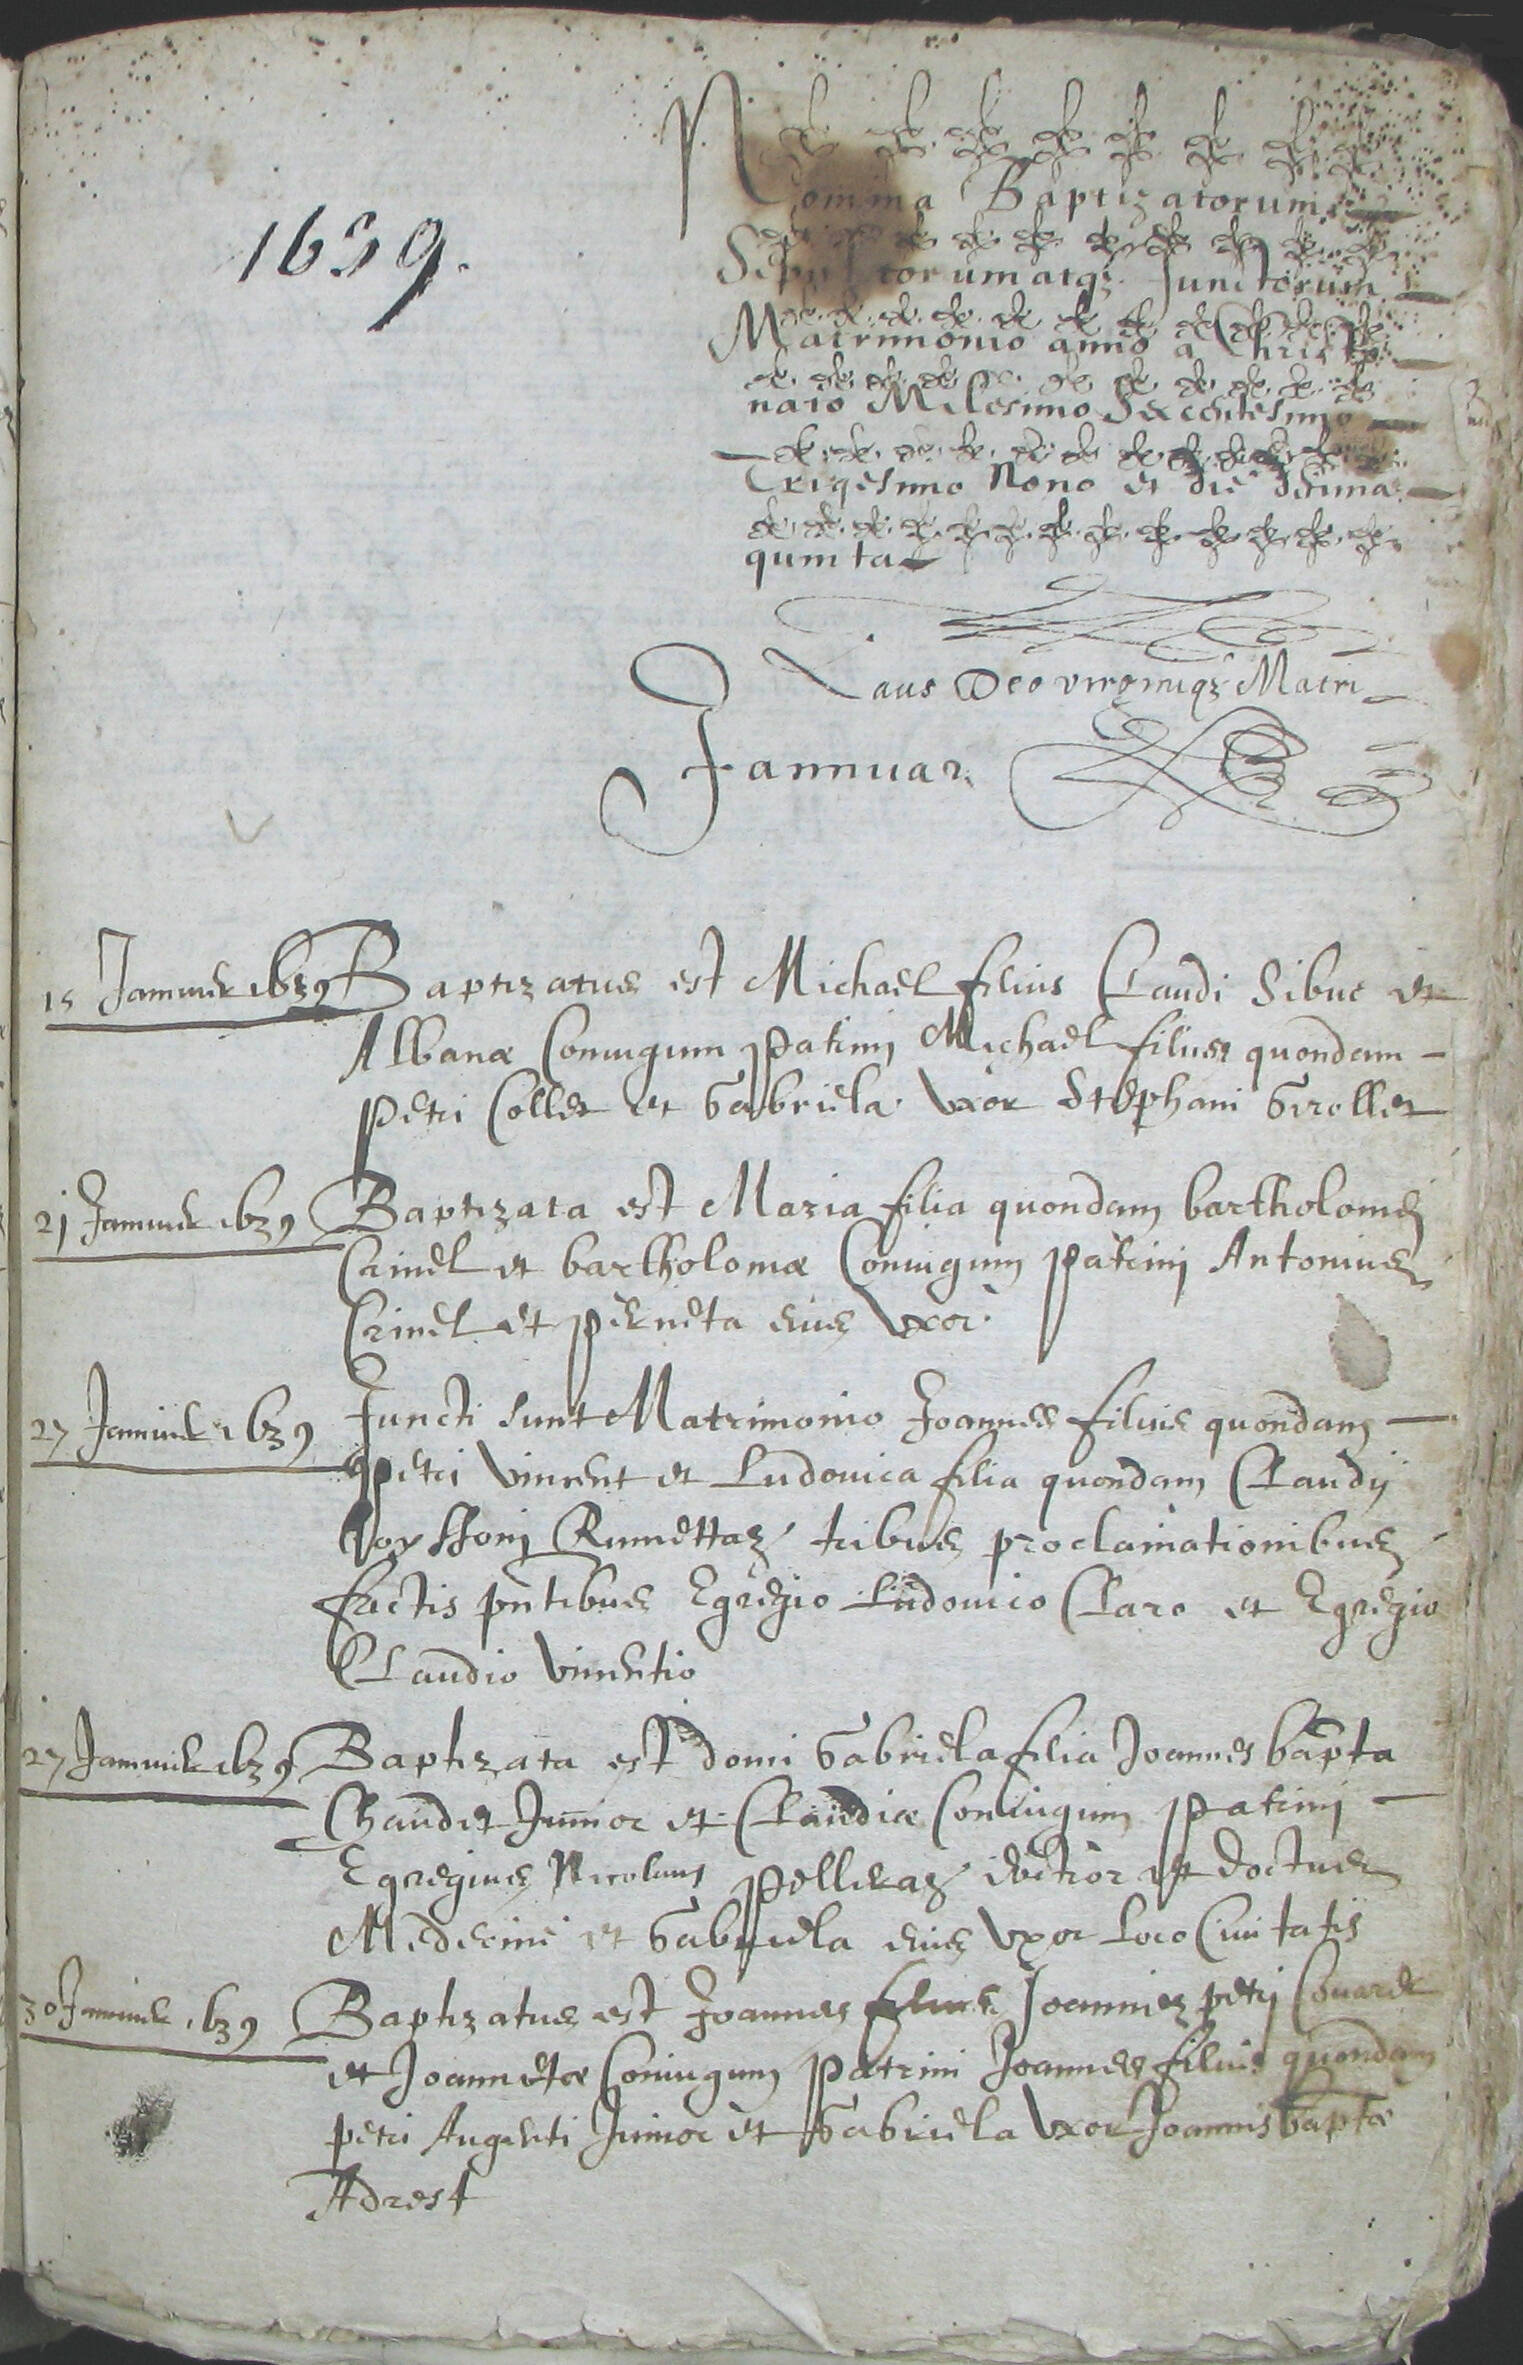 1639.
Nomina Baptizatorum
Sepultorum atqz Junctorum
Matrimonio anno a Christo
nato Milesimo Sexcentesimo
Trigesimo Nono et die decima
quinta
Laus Deo virginiqz Matri
Jannuar.
15 Januar 1639 Baptizatus est Michael filius Claudi Sibue et
Albanæ Coniugum patrini Michael filius quondam
petri Collet et Gabriela Uxor Stephani Grollet
21 Januar 1639 Baptizata est Maria filia quondam bartholomei
Crinel et bartholomæ Coniugum patrini Antonius
Crinel et perneta eius Uxor
27 Januar 1639 Juncti sunt Matrimonio Joannes filius quondam
petri vincent et Ludovica filia quondam Claudij
Rumettaz tribus proclamationibus
factis pntibus Egregio Ludovico Claro et Egregio
Claudio vincentio
27 Januar 1639 Baptizata est domi Gabriela filia Joannes bapta
Chaudet Junior et Claudiæ Coniugum patrini
Egregius Nicolaus pelleraz et doctus
Medecine et Gabriela eius Uxor Loco Civitatis
30 Januar 1639 Baptizatus est Joannes filius Joannis petri
et Joannetæ Coniugum patrini Joannes filius quondam
petri Augenti Junior et Gabriela Uxor Joannis bapta
Adrest